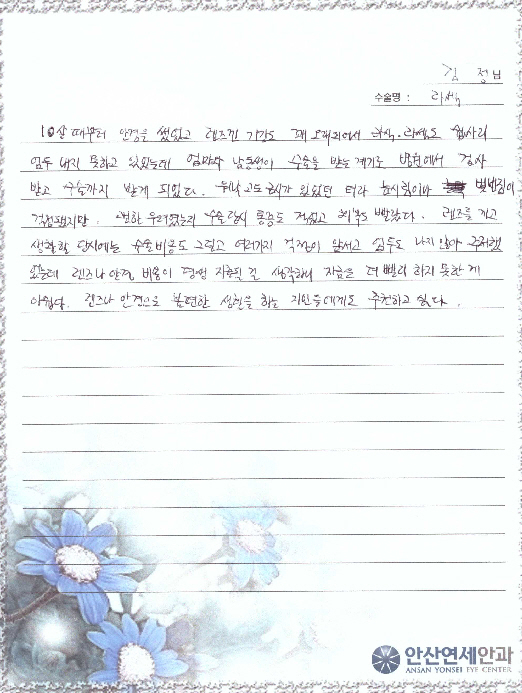 김 정님
수술명 : 라섹
10살 때부터 안경을 썼었고 렌즈낀 기간도 꽤 오래되어서 라식·라섹도 쉽사리
엄두 내지 못하고 있었는데 엄마와 남동생이 수술을 받는 계기로 병원에서 검사
받고 수술까지 받게 되었다. 워낙 고도 난시가 있었던 터라 눈시림이나 빛번짐이
걱정됐지만, 수술당시 통증도 적었고 회복도 빨랐다. 렌즈를 끼고
생활할 당시에는 수술비용도 그렇고 여러가지 걱정이 앞서고 엄두도 나지 않아
렌즈나 안경 비용이 평생 지출될 걸 생각하니 지금을 더 빨리 하지 못한 게
아쉽다. 렌즈나 안경으로 불편한 생활을 하는 지인들에게도 추천하고 싶다.
안산연세안과
ANSAN YONSEI EYE CENTER